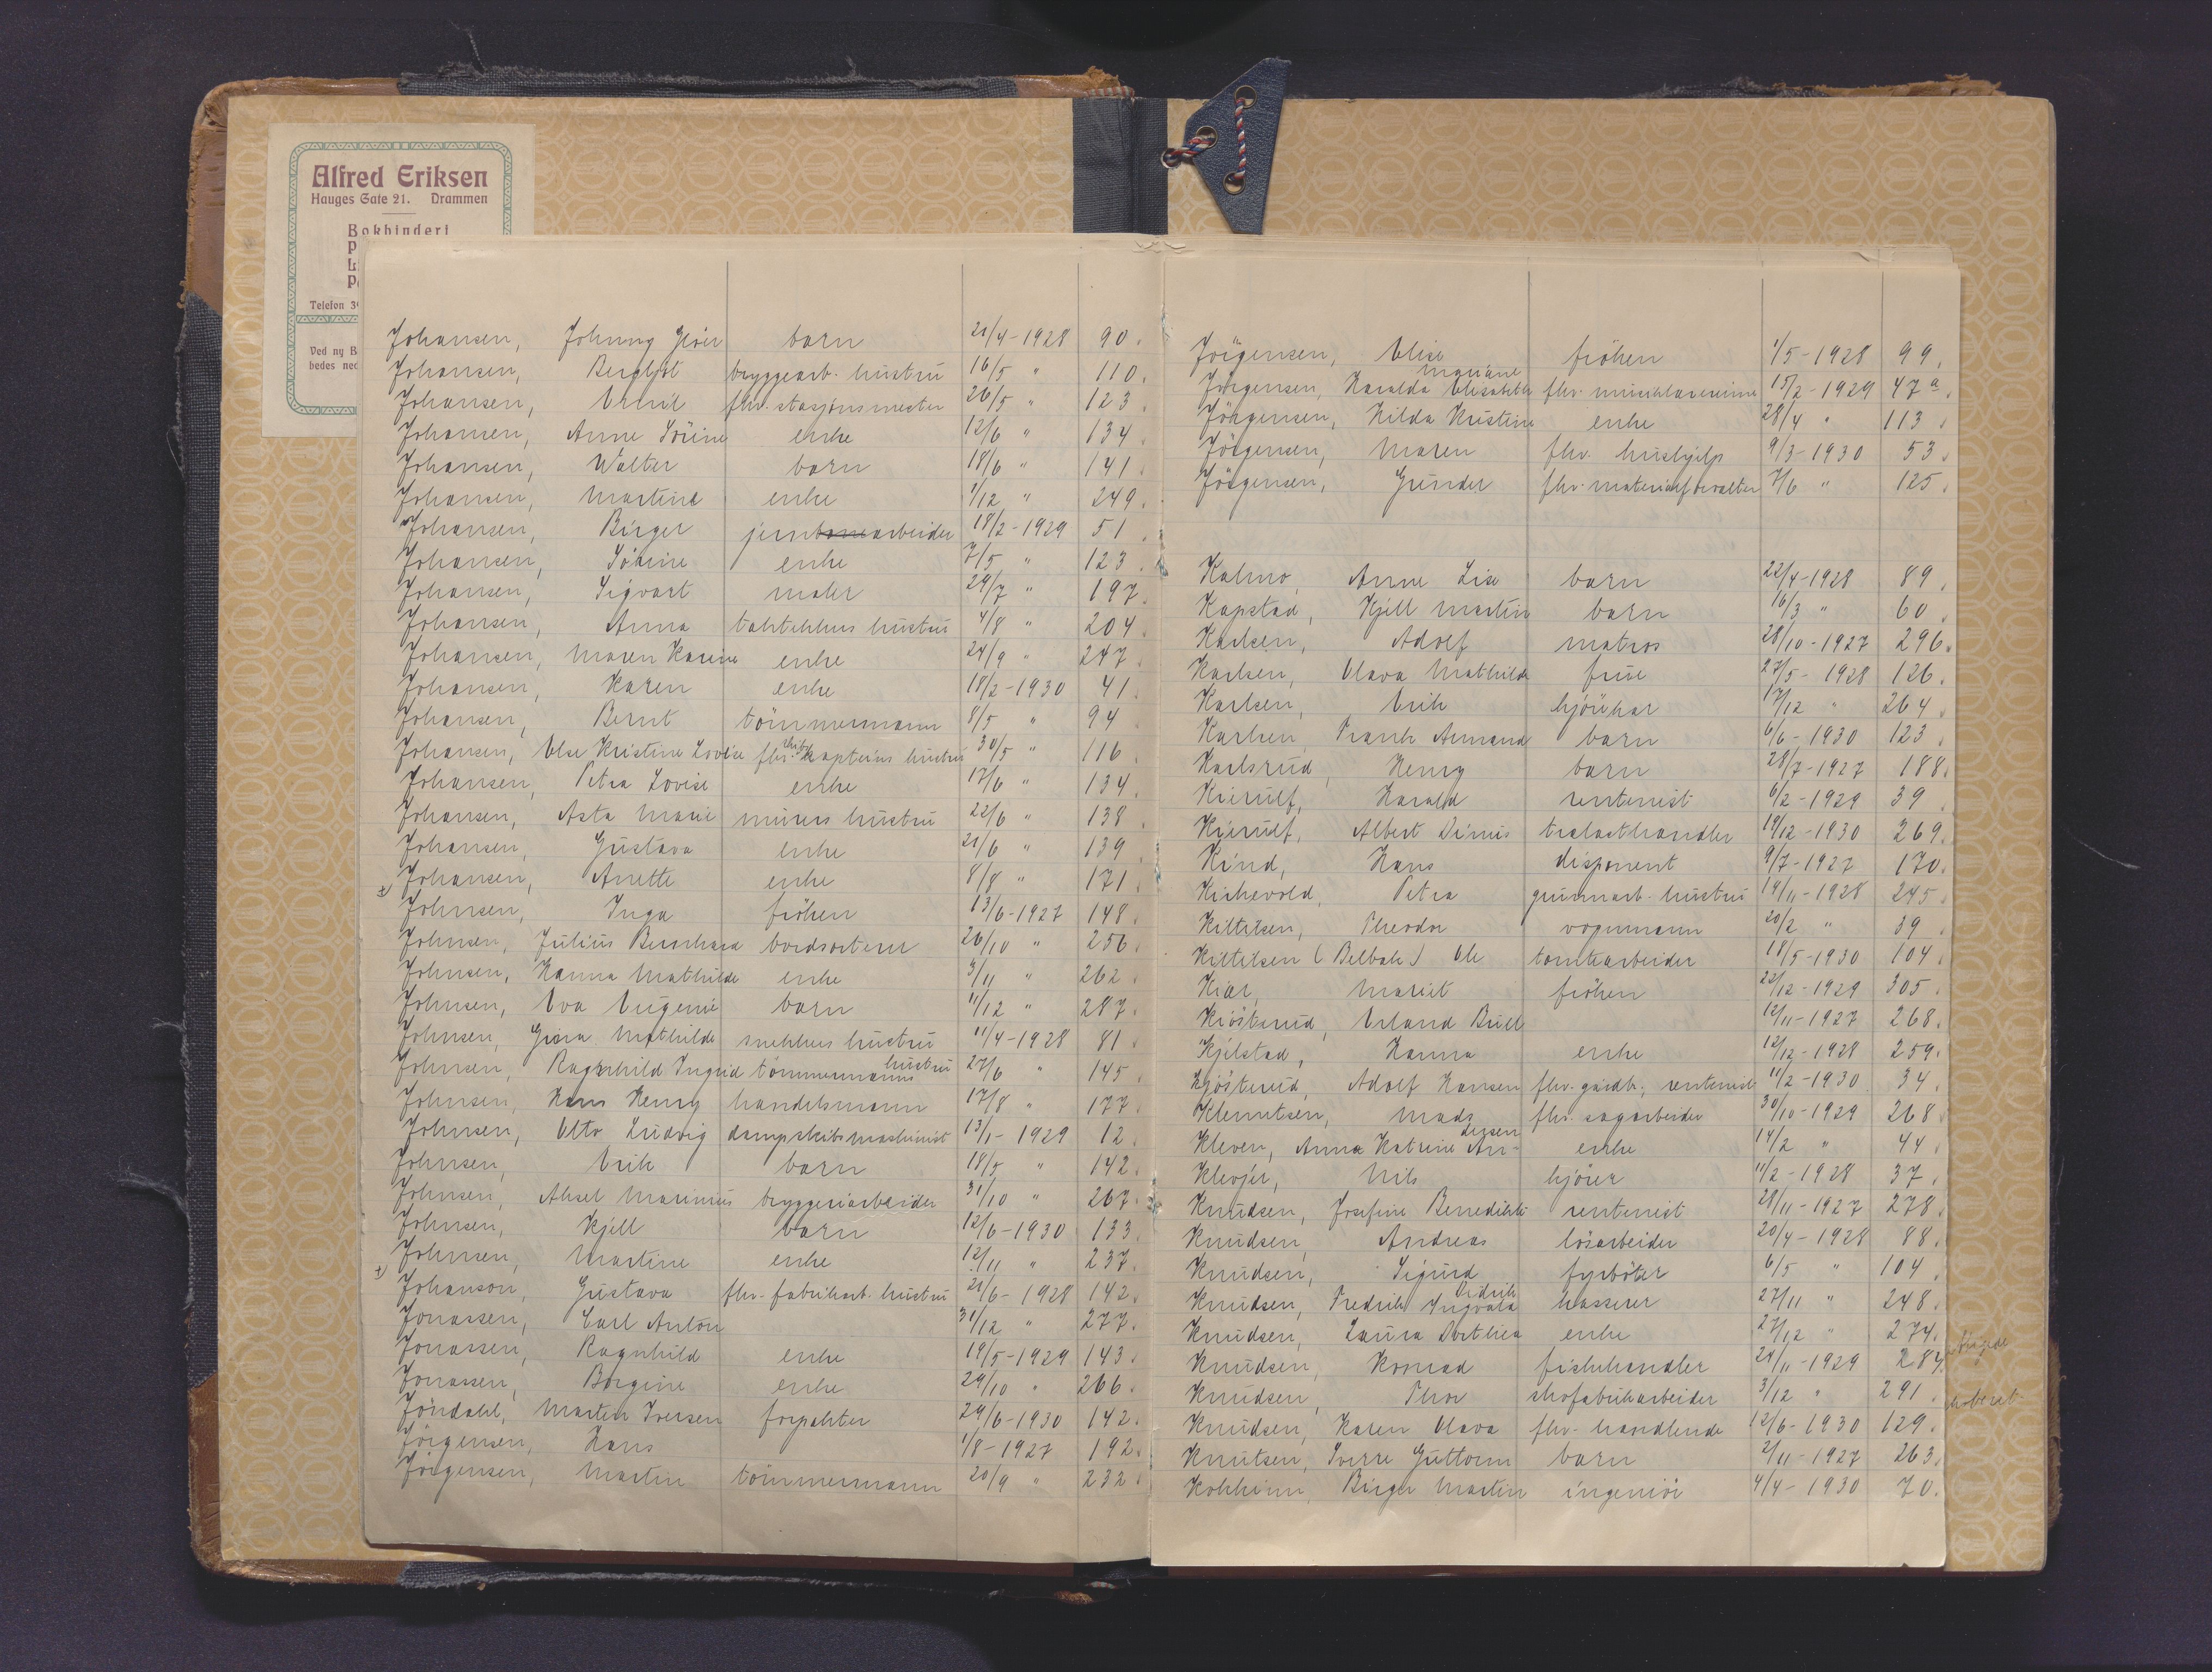 Alfred Eriksen
Hauges Gate 21. Drammen
Bokbinderi
Telefon
Ved ny B
bedes ned
Johansen, Johnny Geier barn 21/4-1928 90.
Johansen, Bergljot bryggearb. hustru 16/5 " 110.
Johansen, Emil fhv. stasjonsmester 26/5 " 123
Johansen, Anne Sørine enke 12/6 " 134.
Johansen, Walter barn 18/6 " 141.
Johansen, Martine enke 1/12 " 249.
Johansen, Birger jernbanearbeider 18/2-1929 51.
Johansen, Sörine enke 7/5 " 123.
Johansen, Sigvart maler 29/7 " 197.
Johansen, Anna taktekkers hustru 4/8 " 204.
Johansen, Maren Karine enke 24/9 " 247.
Johansen, Karen enke 18/2-1930 41.
Johansen, Bernt tömmermann 8/5 " 94.
Johansen, Else Kristine Lovise fhv. skibskapteins hustru 30/5 " 116
Johansen, Petra Lovise enke 17/6 " 134.
Johansen, Asta Marie murers hustru 22/6 " 138.
Johansen, Gustava enke 21/6 " 139.
Johansen, Anette enke 8/8 " 171.
Johnsen, Inga fröken 13/6-1927 148.
Johnsen, Julius Bernhard bordsorterer 26/10 " 256.
Johnsen, Hanna Mathilde enke 3/11 " 262.
Johnsen, Eva Eugenie barn 11/12 " 287.
Johnsen, Gina Mathilde snekkers hustru 11/4-1928 81.
Johnsen, Ragnhild Ingrid tömmermanns hustru 27/6 " 145.
Johnsen, Hans Henry handelsmann 17/8 " 177.
Johnsen, Otto Ludvig dampskibsmaskinist 13/1-1929 12.
Johnsen, Erik barn 18/5 " 142.
Johnsen, Aksel Marinius bryggeriarbeider 31/10 " 267.
Johnsen, Kjell barn 12/6-1930 133.
Johnsen, Martine enke 12/11 " 237.
Johanson, Gustava fhv. fabrikarb. hustru 21/6-1928 142.
Jonassen, Carl Anton 31/12 " 277.
Jonassen, Ragnhild enke 19/5-1929 143.
Jonassen, Borgine enke 29/10 " 266.
Jöndahl, Morten Iversen forpakter 29/6-1930 142.
Jörgensen, Hans 1/8-1927 192.
Jörgensen, Martin tömmermann 20/9 " 232.
Jörgensen, Elise fröken 1/5-1928 99.
Jörgensen, Haralda Elisabeth Mariane fhv. musiklærerinne 15/2-1929 47a.
Jörgensen, Hilda Kristine enke 28/4 " 113.
Jörgensen, Maren fhv. hushjelp 9/3-1930 53.
Jörgensen, Gunder fhv. materialforvalter 7/6 " 125.
Kalmo, Anne Lise barn 22/4-1928 89.
Kapstad, Kjell Martin barn 16/3 " 60.
Karlsen, Adolf matros 28/10-1927 296.
Karlsen, Olava Mathilde frue 27/5-1928 126.
Karlsen, Erik kjörekar 17/12 " 264.
Karlsen, Frank Armand barn 6/6-1930 123.
Karlsrud, Henry barn 28/7-1927 188.
Kierulf, Harald rentenist 6/2-1929 39.
Kjerulf, Albert Dinus trelasthandler 19/12-1930 269.
Kind, Hans disponent 9/7-1927 170.
Kirkevold, Petra grunnarb. hustru 14/11-1928 245.
Kittelsen, Theodor vognmann 20/2 " 39.
Kittelsen (Belbak) Ole tomtearbeider 18/5-1930 104.
Kiær, Mariet fröken 22/12-1929 305.
Kiösterud, Erland Bull 12/11-1927 268.
Kjelstad, Hanna enke 12/12-1928 259.
Kjösterud, Adolf Hansen fhv. gårdbr., rentenist 11/2-1930 34.
Klemetsen, Mads fhv. sagarbeider 30/10-1929 268.
Kleven, Anna Katrine An-dersen enke 14/2 " 44.
Klevjer, Nils kjörer 11/2-1928 37.
Knudsen, Josefine Benedikte rentenist 28/11-1927 278.
Knudsen, Andreas lösarbeider 20/4-1928 88.
Knudsen, Sigurd fyrböter 6/5 " 104.
Knudsen, Fredrik Ingvald Didrik kasserer 27/11 " 248.
Knudsen, Laura Dorthea enke 27/12 " 274.
Knudsen, Konrad fiskehandler 24/11-1929 287.
Knudsen, Thor skofabrikarbeider 3/12 " 291.
Knudsen, Karen Olava fhv. handlende 12/6-1930 129.
Knutsen, Sverre Guttorm barn 2/11-1927 263.
Kokkinn, Birger Martin ingeniör 4/4-1930 70.